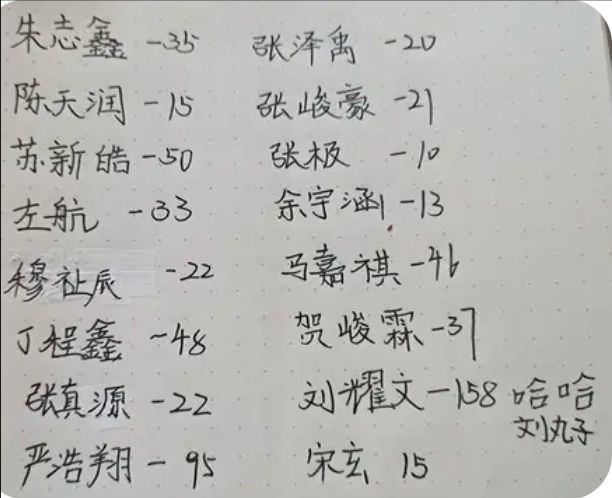 朱志鑫 -35 张泽禹 -20
陈天润 -15 张峻豪 -21
苏新皓 -50 张极 -10
左航 -33 余宇涵 -13
穆祉辰 -22 马嘉祺 -46
丁程鑫 -48 贺峻霖 -37
张真源 -22 刘耀文 -158 哈哈
刘丸子
严浩翔 - 95 宋玄 15